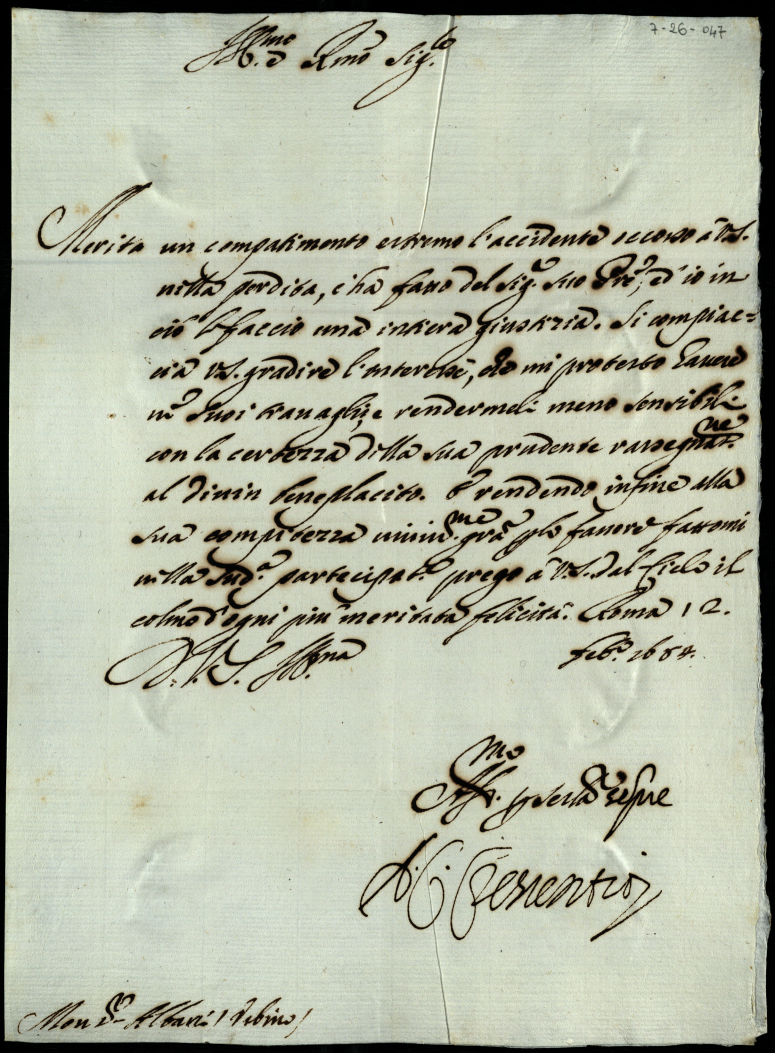 7-26-047
Ill.mo e Rmo Sig.re
Merita un compatimento estremo l'accidente occorso à V.S.
nella perdita, c'ha fatto del Sig.r Suo Pre, ed' io in
ciò le faccio una intiera giustizia. Si compiac=
cia V.S. gradire l'interesse, che mi protesto havere
ne' suoi travagli, e rendermeli meno sensibili
con la certezza della sua prudente rassegnat.ne
al divin beneplacito. E rendendo infine alla
sua compitezza vivis.me gra.e p lo favore fattomi
nella sud.a partecipat.e prego à V.S. dal Cielo il
colmo d'ogni più meritata felicità. Roma 12.
Feb.o 1684.
D. V. S. Ill.ma
Aff.mo p servir.la sempre
A. C. Crescentio
Mon S.r Albani / Urbino /